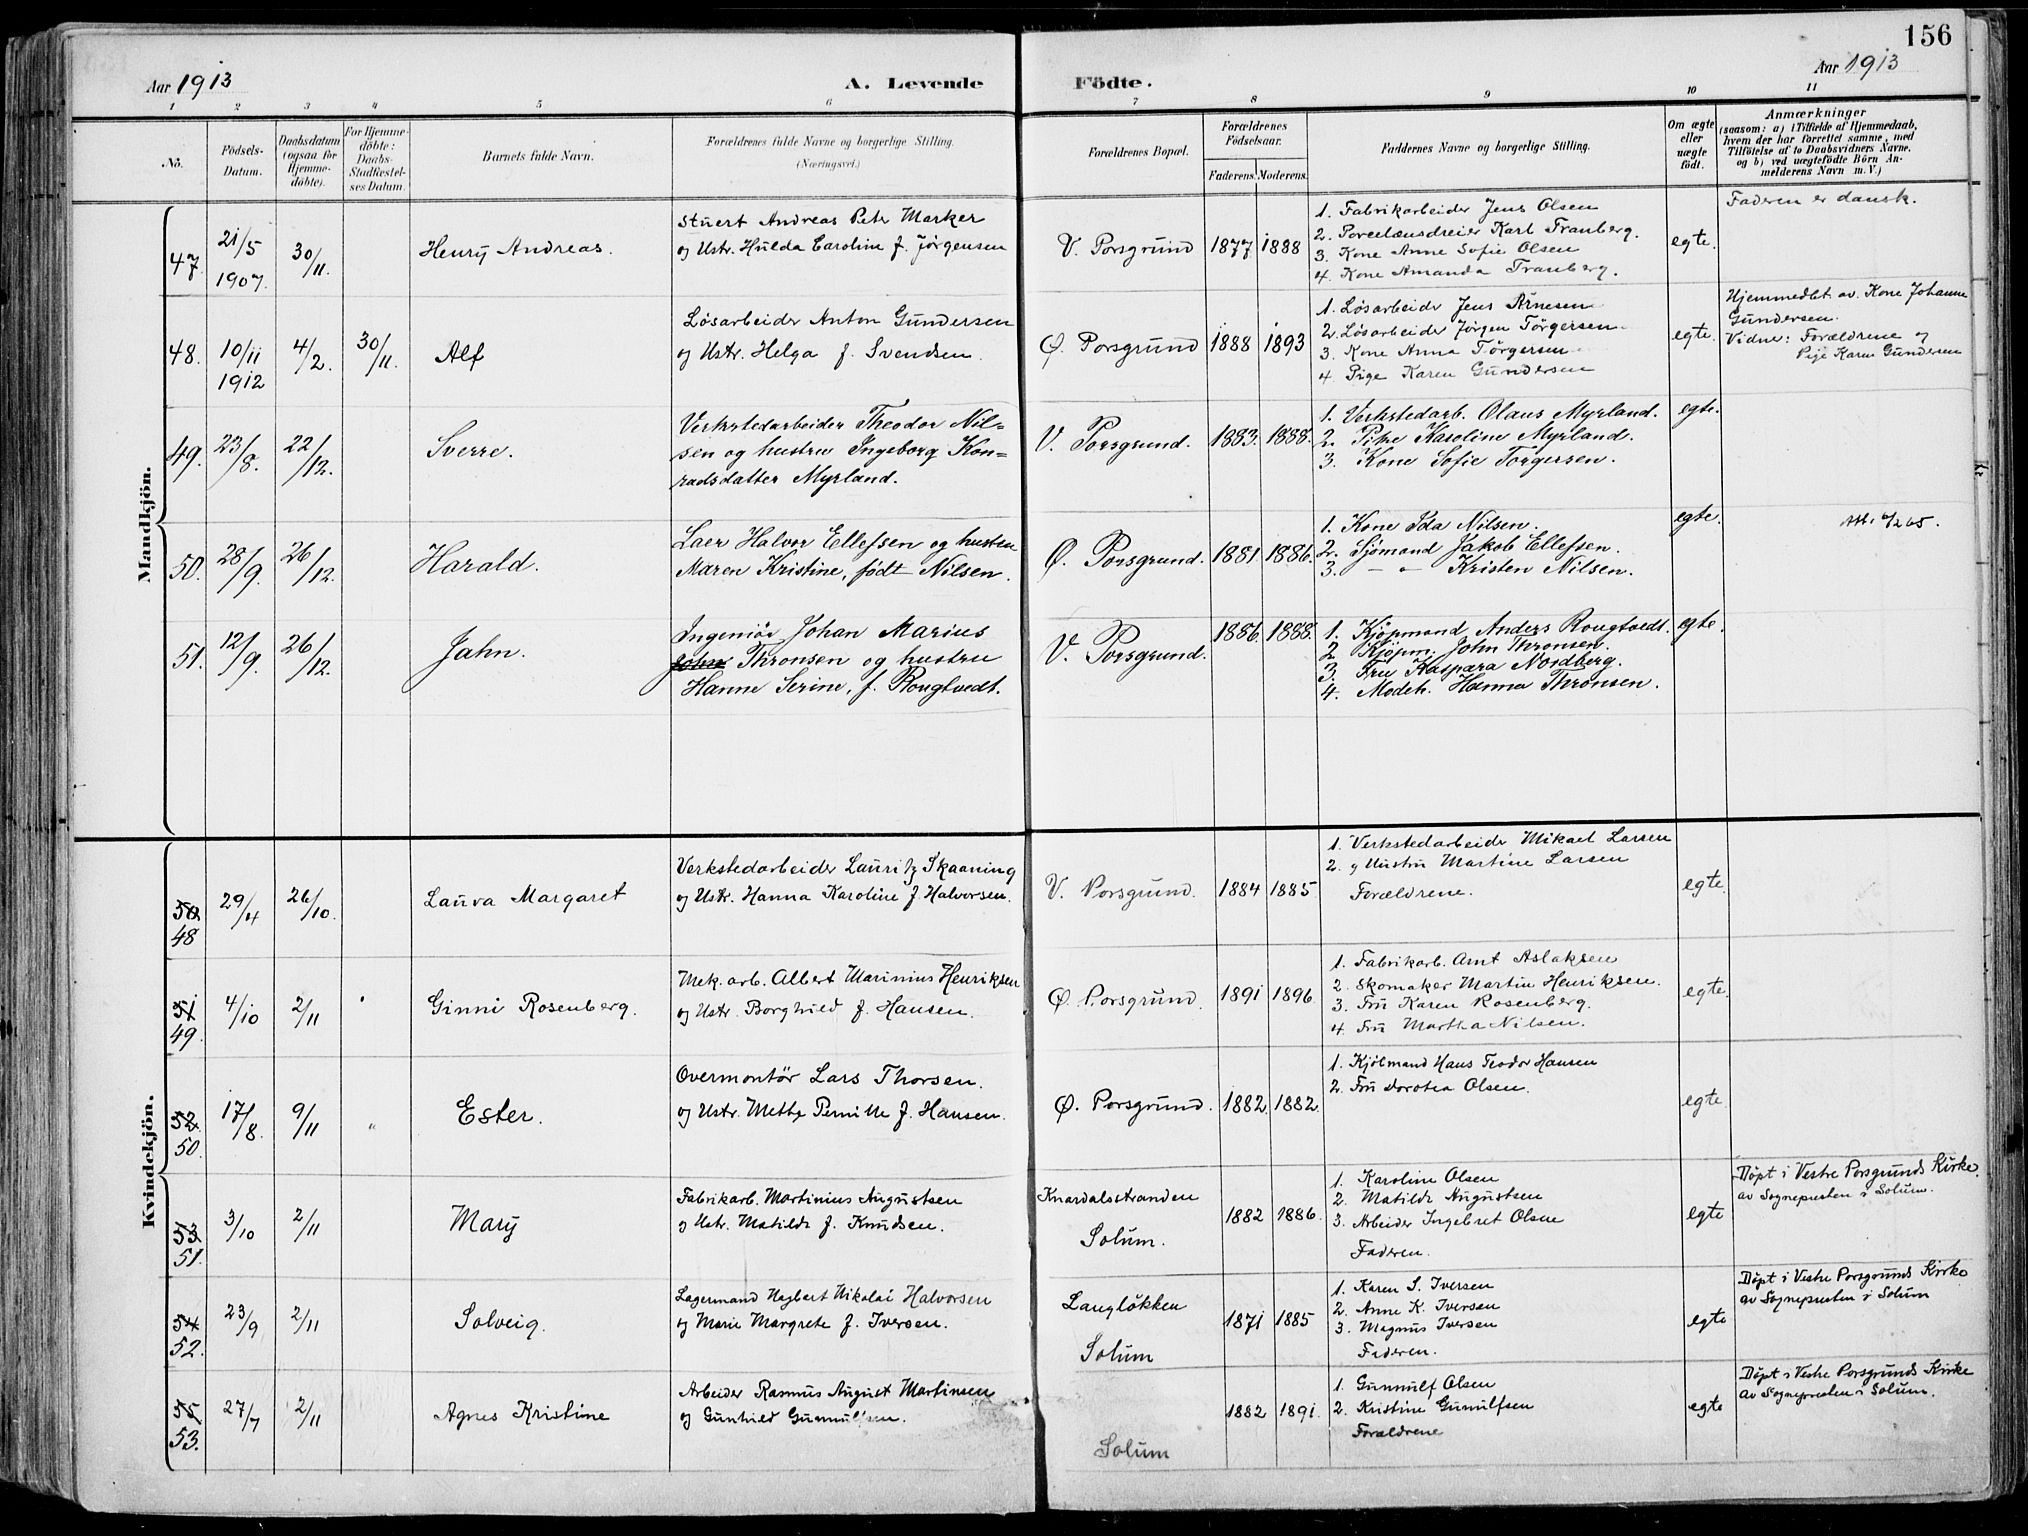 156
Aar 1913
A. Levende
Födte.
Aar 1913
1 2 3 4 5 6 7 8 9 10 11
No.
Födsels-Datum.
Daabsdatum (ogsaa for Hjemme-döbte).
For Hjemme-döbte: Daabs-Stadfæstel-ses Datum.
Barnets fulde Navn.
Forældrenes fulde Navne og borgerlige Stilling.
(Næringsvei.)
Forældrenes Bopæl.
Forældrenes Födselsaar.
Faderens. Moderens.
Faddernes Navne og borgerlige Stilling.
Om ægte eller uægte födt.
Anmærkninger
(saasom: a) i Tilfælde af Hjemmedaab,
hvem der har forrettet samme, med
Tilföielse af to Daabsvidners Navne.
og b) ved uægtefödte Börn An-
melderens Navn m. V.)
Mandkjön.
47. 21/5 1907. 30/11. Henry Andreas.
Stuert Andreas Petr Marker
og Ustr. Hulda Caroline f. Jørgensen
V. Porsgrund 1877. 1888
1. Fabrikarbeider Jens Olsen
2. Porcelænsdreier Karl Tranberg.
3. Kone Anne Sofie Olsen
4. Kone Amanda Tranberg.
egte.
Faderen er dansk.
48. 10/11 1912 4/2. 30/11. Alf
Løsarbeider Anton Gundersen
og Ustr. Helga f. Svendsen.
Ø. Porsgrund 1888 1893
1. Løsarbeider Jens Arnesen
2. Løsarbeider Jørgen Törgersen
3. Kone Anna Törgersen
4. Pige Karen Gundersen
egte.
Hjemmedbt. av. Kone Johanne
Gundersen.
Vidner: Forældrene og
Pige Karen Gundersen
49. 23/8. 22/12. Sverre.
Verkstedarbeider Theodor Nil=
sen og hustru Ingeborg Kon=
radsdatter Myrland.
V. Porsgrund. 1883. 1888.
1. Verkstedarb. Olaus Myrland.
2. Pike Karoline Myrland.
3. Kone Sofie Torgersen.
egte.
50. 28/9. 26/12. Harald.
Laer Halvor Ellefsen og hustru
Maren Kristine, født Nilsen.
Ø. Porsgrund. 1881. 1886.
1. Kone Ida Nilsen.
2. Sjömand Jakob Ellefsen.
3. — " — Kristen Nilsen.
egte.
51. 12/9. 26/12. Jahn.
Ingeniør Johan Marius
Thronsen og hustru
Hanne Serine, f. Rougtvedt.
V. Porsgrund. 1886. 1888.
1. Kjöpmand Anders Rougtvedt.
2. Kjöpm. John Thronsen.
3. Fru Kaspara Nordberg.
4. Modeh. Hanna Thronsen.
egte.
Kvindekjön.
50 48 29/4 26/10. Laura Margaret
Verkstedarbeider Lauritz Skaaning
og Ustr. Hanna Karoline f. Halvorsen.
V. Porsgrund. 1884 1885
1. Verkstedarbeider Mikael Larsen
2. og Hustru Martine Larsen
Forældrene.
egte.
51 49. 4/10 2/11 Ginni Rosenberg.
Mek. arb. Albert Marinius Henriksen
og Ustr. Borghild f. Hansen.
Ø. Porsgrund. 1891 1896.
1. Fabrikarb. Arnt Aslaksen
2. Skomaker Martin Henriksen.
3. Fru Karen Rosenberg.
4. Fru Martha Nilsen.
egte.
52 50. 17/8. 9/11 " Ester.
Overmontör Lars Thorsen.
og Ustr. Mette Pernille f. Hansen.
Ø. Porsgrund. 1882 1882.
1. Kjölmand Hans Teodor Hansen
2. Fru Dorotea Olsen.
egte.
53 51. 3/10 2/11 Mary
Fabrikarb. Martinius Augustsen
og Ustr. Matilde f. Knudsen.
Knardalsstranden
Solum.
1882 1886.
1. Karoline Olsen
2. Matilde Augustsen
3. Arbeider Ingebret Olsen
Faderen.
egte
Döpt i Vestre Porsgrunds Kirke.
av Sognepresten i Solum.
54 52. 23/9 2/11 Solveig.
Lagermand Halvorsen
og Marie Margrete f. Iversen.
Langlökken
Solum
1871 1885
1. Karen S. Iversen
2. Anne K. Iversen
3. Magnus Iversen
Faderen.
egte
Döpt i Vestre Porsgrunds Kirke
av Sognepresten i Solum
55 53. 27/7 2/11 Agnes Kristine
Arbeider Rasmus August Martinsen
og Gunhild Gunnulfsen.
Solum
1882 1891.
1. Gunnulf Olsen
2. Kristine Gunulfsen
Forældrene
egte
Döpt i Vestre Porsgrunds Kirke
av Sognepresten i Solum.